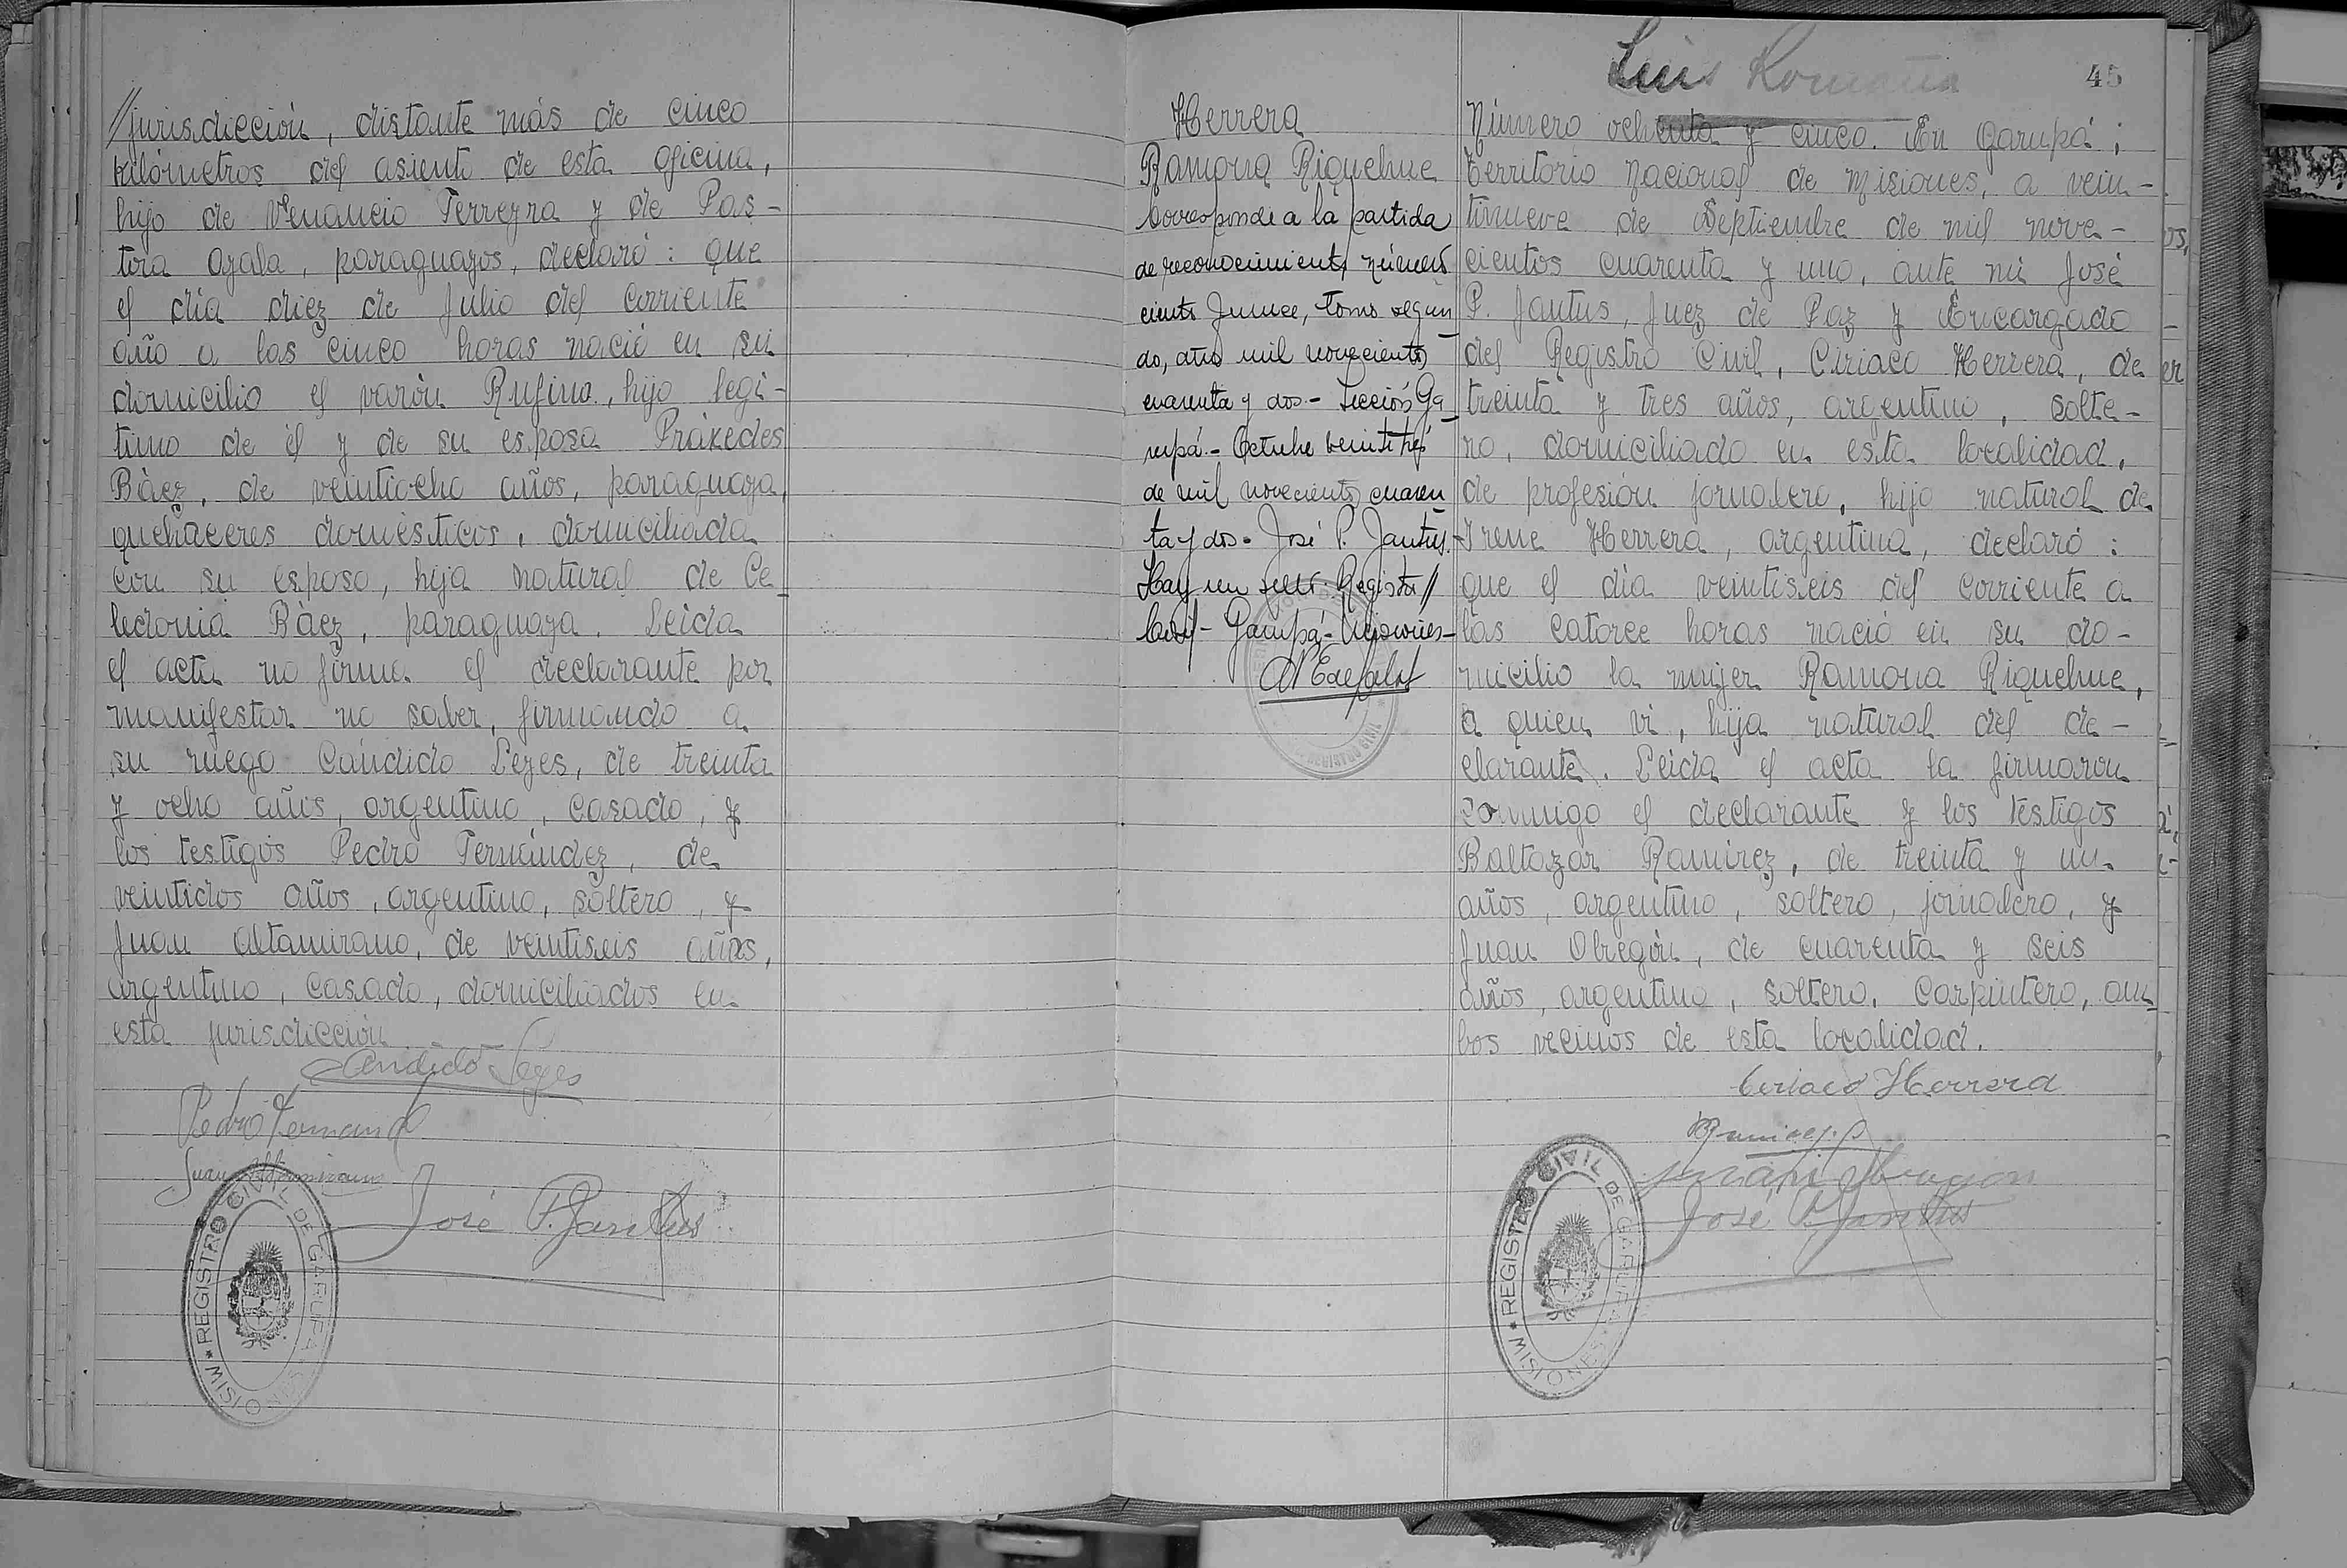 //jurisdicción, distante más de cinco
kilómetros del asiento de esta oficina,
hijo de Venancio Ferreyra y de Pas-
tora Ayala, paraguayos, declaró: que
el día diez de Julio del corriente
año a las cinco horas nació en su
domicilio el varón Rufino, hijo legí-
timo de él y de su esposa Práxedes
Báez, de veintiocho años, paraguaya,
quehaceres domésticos, domiciliada
con su esposo, hija natural de Ce-
ledonia Báez, paraguaya. Leída
el acta no firma el declarante por
manifestar no saber, firmando a
su ruego Cándido Leyes, de treinta
y ocho años, argentino, casado, y
los testigos Pedro Fernández, de
veintidos años, argentino, soltero, y
Juan Altamirano, de veintiseis años,
argentino, casado, domiciliados en
esta jurisdicción
Candido Leyes
Pedro Fernand
Juan Altamirano
José P. Jantus
REGISTRO CIVIL DE GARUPA
* MISIONES *
Herrera
Ramona Riquelme
Corresponde a la partida
de reconocimiento número
ciento quince, tomo segun
do, año mil novecientos
cuarenta y dos.- Sección Ga
rupá.- Octubre veintitrés
de mil novecientos cuaren
ta y dos.- José P. Jantus.-
Hay un sello: Registro //
Civil - Garupá - Misiones-
Luis Romaña
45
Número ochenta y cinco. En Garupá;
Territorio Nacional de Misiones, a vein-
tinueve de Septiembre de mil nove-
cientos cuarenta y uno, ante mí José
P. Jantus, Juez de Paz y Encargado
del Registro Civil, Ciriaco Herrera, de
treinta y tres años, argentino, solte-
ro, domiciliado en esta localidad,
de profesión jornalero, hijo natural de
Irene Herrera, argentina, declaró:
que el día veintiseis del corriente a
las catorce horas nació en su do-
micilio la mujer Ramona Riquelme,
a quien vi, hija natural del de-
clarante. Leída el acta la firmaron
conmigo el declarante y los testigos
Baltazar Ramírez, de treinta y un
años, argentino, soltero, jornalero, y
Juan Obregón, de cuarenta y seis
años, argentino, soltero, carpintero, am-
bos vecinos de esta localidad.
Ciriaco Herrera
José P. Jantus
REGISTRO CIVIL DE GARUPA
* MISIONES *